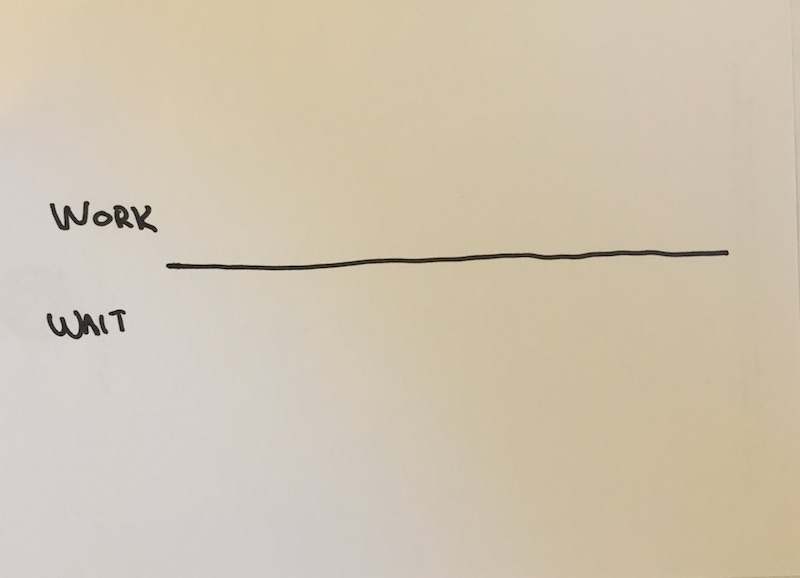 WORK
WAIT